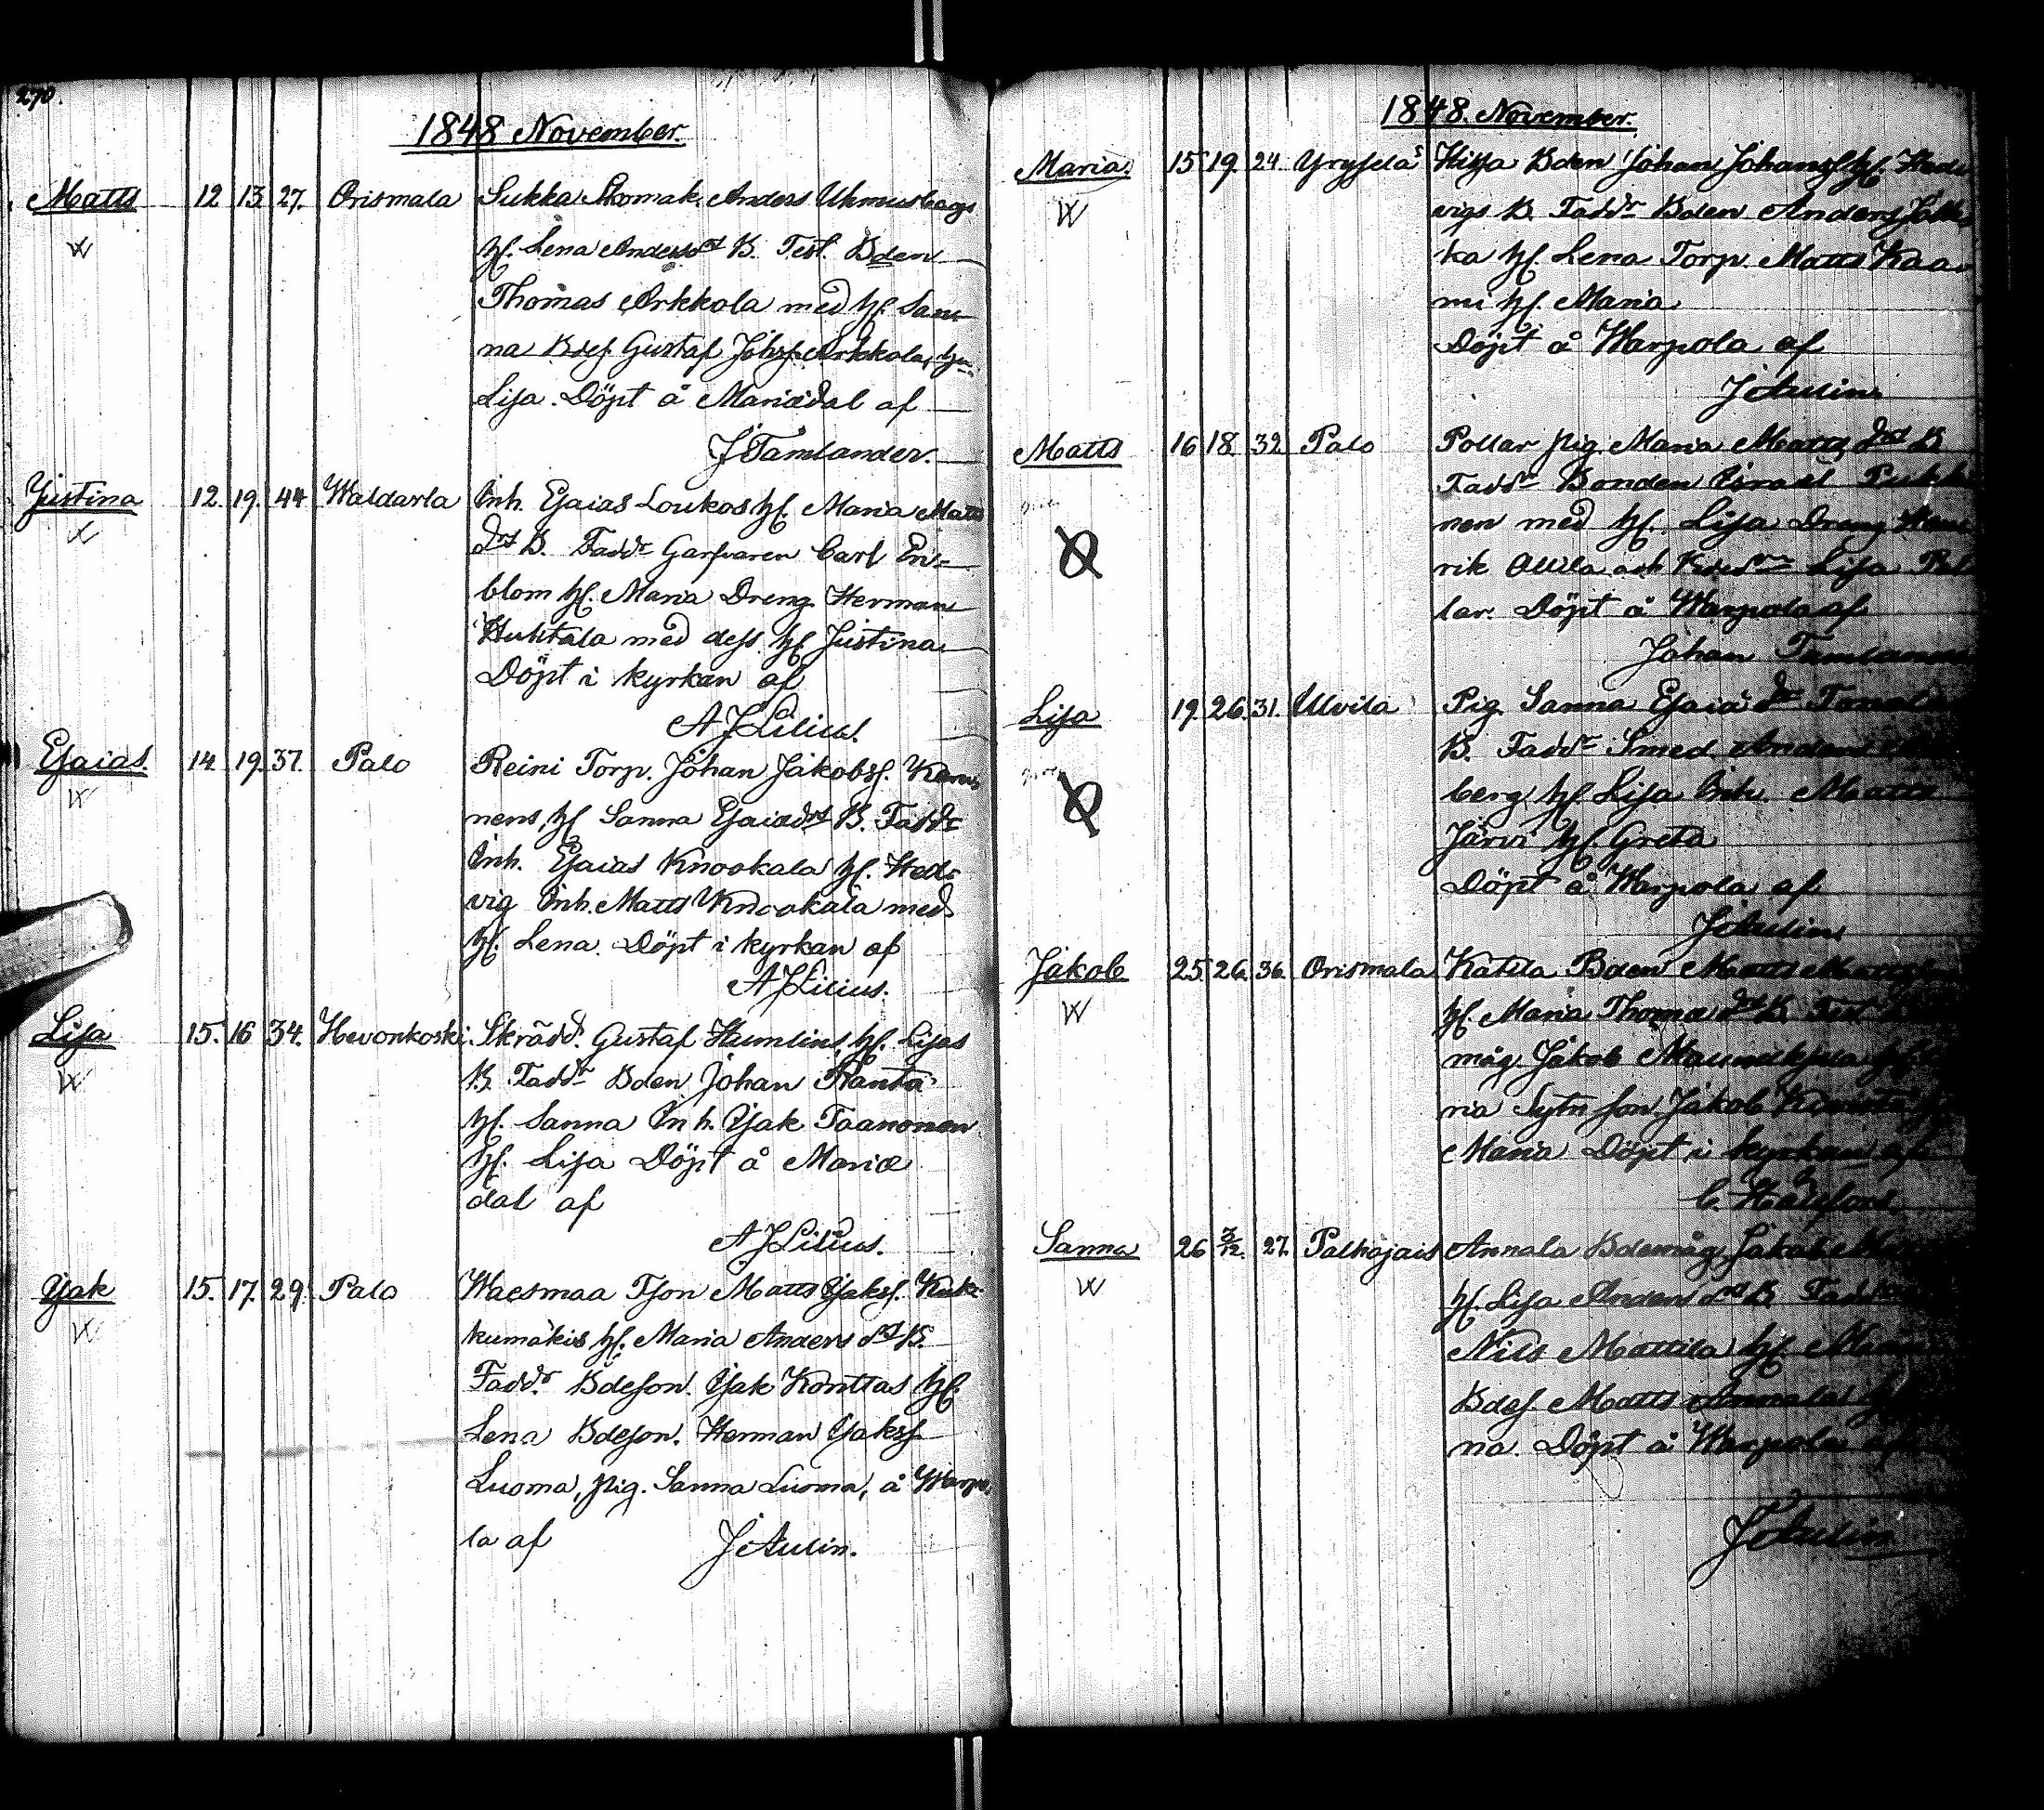 270.
1848 November.
Matts 12 13 27. Orismala Sukka Skomak. Anders Uhmusbergs
hf. Lena Andersdt B. Test. Bden
Thomas Arkkola med hf. San
na Bdes. Gustaf Johss. Arkkola, hu.
Lisa. Döpt å Mariædal af
J Tamlander.
Justina 12. 19. 44 Waldarla Inh. Esaias Loukos hf. Maria Matts
dot B. Faddr Garfvaren Carl En-
blom hf. Maria Dreng Herman
Huhtala med dess hf. Justina
Döpt i kyrkan af
A J Lilius.
Esaias. 14 19. 37. Palo Reini Torp. Johan Jakobss.
nens, hf Sanna Esaiædot B. Faddr
Inh. Esaias Knookala hf. Hed-
vig Inh. Matts Knookala med
hf. Lena. Döpt i kyrkan af
A J Lilius.
Lisa 15. 16 34. Hevonkoski Skrädd. Gustaf Humlins, hf. Lisas
B Faddr Bden Johan Ranta
hf. Sanna Inh. Isak Taanonen
hf. Lisa Döpt å Mariæ
dal af
A J Lilius.
Isak 15. 17. 29. Palo Waesmaa Tson Matts Isakss. Kuk-
kumäkis hf. Maria Anders dot B.
Faddr. Bdeson. Isak Konttas hf.
Lena Bdeson. Herman Isakss
Luoma, pig. Sanna Luoma, å Warpo
la af J Aulin.
1848. November.
Maria. 15 19. 24. Yrysselä Hissa Bden Johan Johanss hf. Hed
vigs B. Faddr Bden Anders
ka hf. Lena Torp. Matts Kaa
mi hf. Maria
Döpt å Warpola af
J Aulin
Matts 16 18. 32. Palo Pollar pig. Maria Matts dot B
Faddr Bonden Israel
nen med hf. Lisa Dreng Hen
rik Ollila och Lisa Pol
lar. Döpt å Warpola af
Johan Tamlander
Lisa 19. 26. 31. Ulvila Pig. Sanna Esaiæ dr
B. Faddr Smed Anders
berg hf Lisa Inh. Matts
Järvi hf. Greta
Döpt å Warpola af
J Aulin
Jakob 25. 26. 36. Orismala Katila Bden Matts
hf. Maria Thomæ dot B. Test
måg. Jakob
ria Sytn son. Jakob
Maria Döpt i kyrkan af
C.
Sanna 26 3/12. 27. Palhojais Annala Bdemåg Jakob
hf. Lisa Anders dot B. Fadd
Nils Mattila hf
Bdes. Matts Annala
na. Döpt å Warpola af
J Aulin